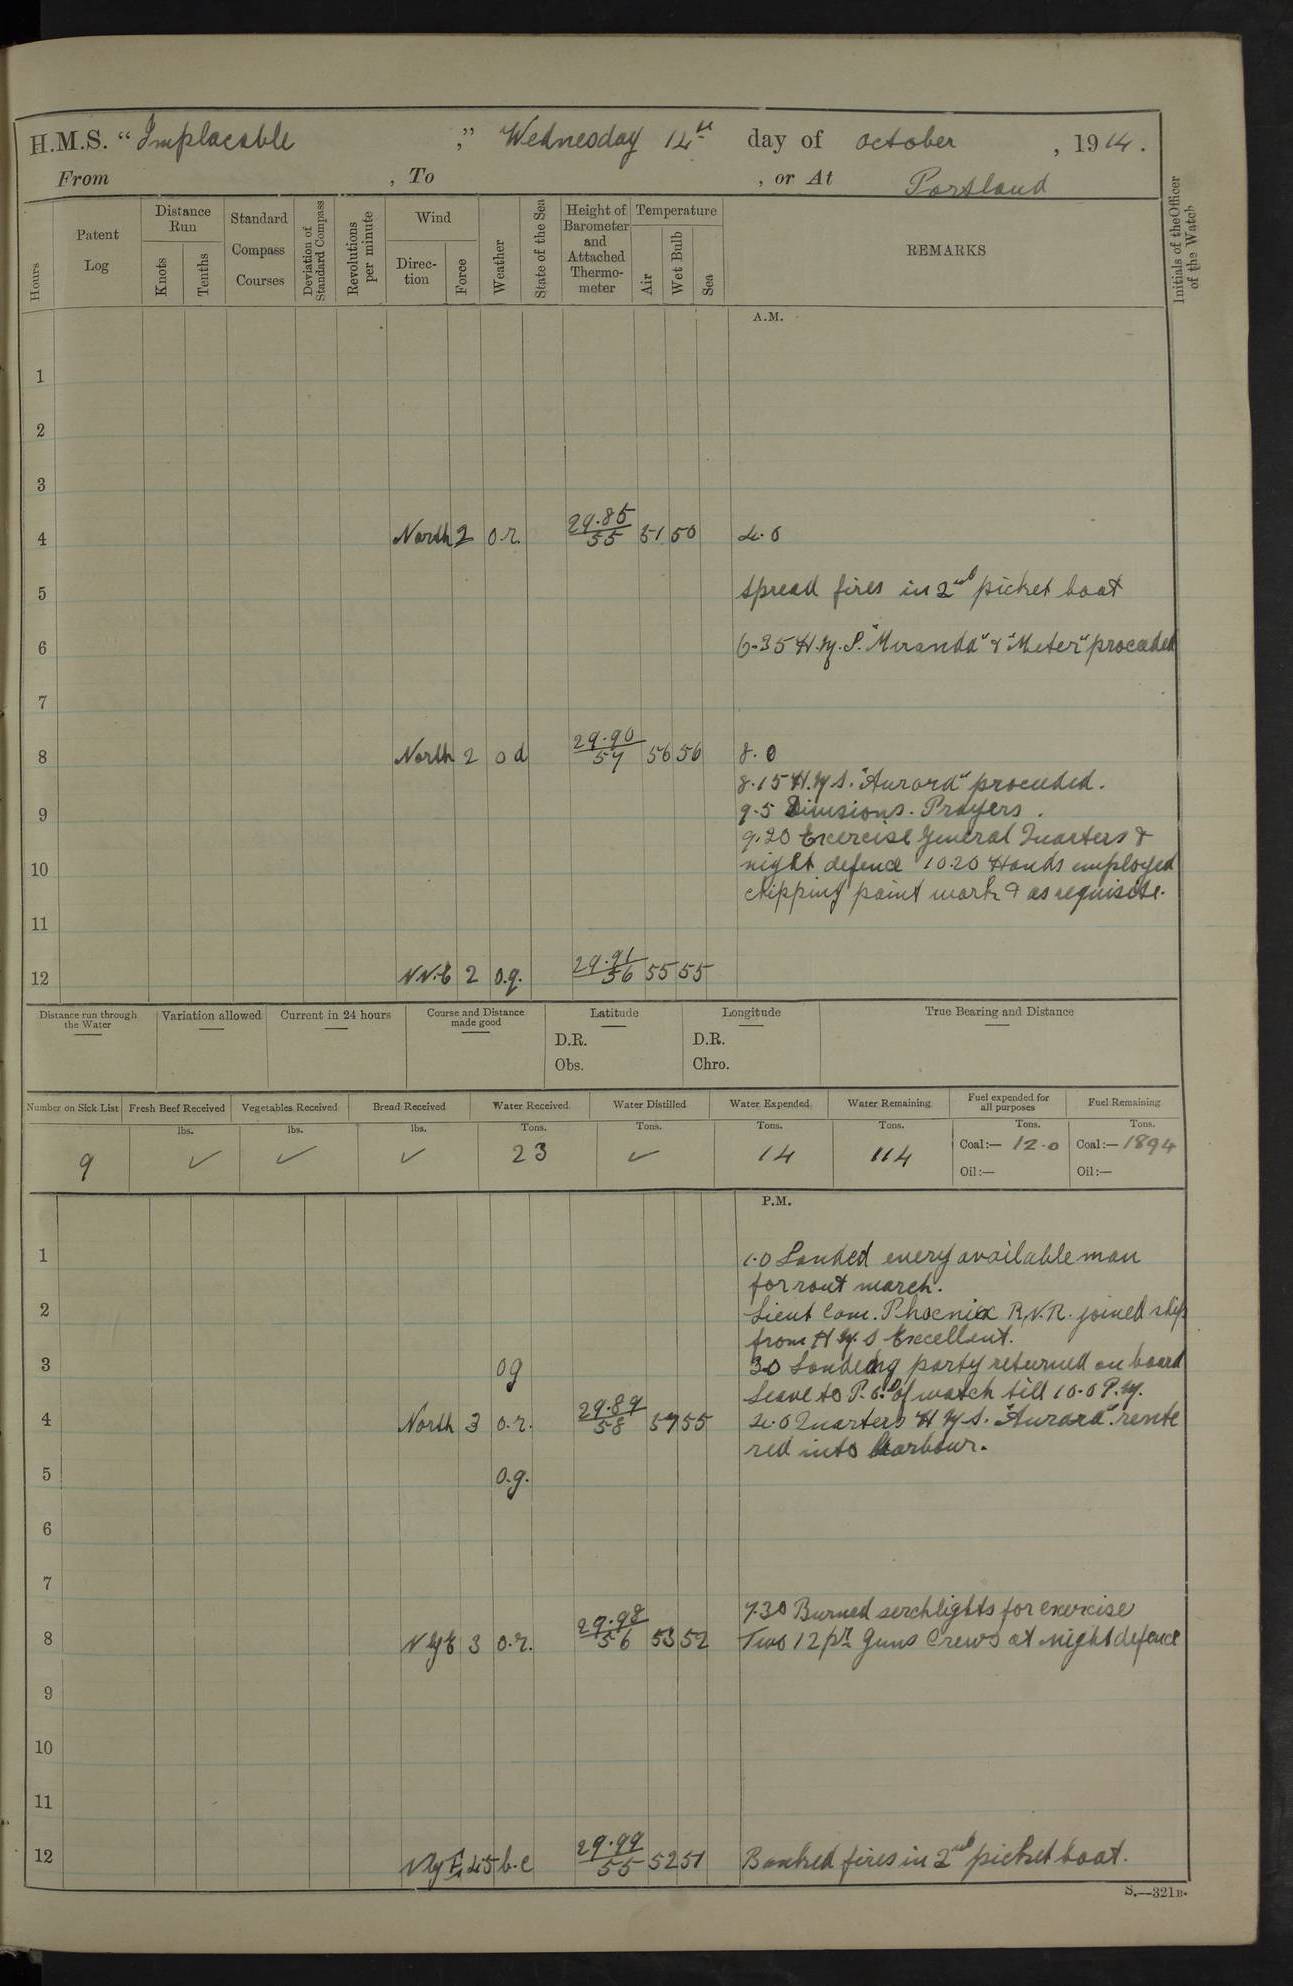 H.M.S. "Implacable," Wednesday 14th day of October, 1914.
From , To , or At Portland
Hours
Patent Log
Distance Run
Knots
Tenths
Standard Compass Courses
Deviation of Standard Compass
Revolutions per minute
Wind
Direction
Force
Weather
State of the Sea
Height of Barometer and Attached Thermometer
Temperature
Air
Wet Bulb
Sea
REMARKS
Initials of the Officer of the Watch
A.M.
1
2
3
4 North 2 o.r. 29.85/55 51 50 4.0
5 Spread fires in 2nd picket boat
6 6.35 H.M.S. "Miranda" & "Meter" proceeded
7
8 North 2 o d 29.90/57 56 56 8.0
8.15 H.M.S. "Aurora" proceeded.
9 9.5 Divisions. Prayers.
9.20 Exercise General Quarters &
10 night defence 10.20 Hands employed
chipping paint work & as requisite.
11
12 NN.E 2 o.g. 29.91/56 55 55
Distance run through the Water
Variation allowed
Current in 24 hours
Course and Distance made good
Latitude
D.R.
Obs.
Longitude
D.R.
Chro.
True Bearing and Distance
Number on Sick List
Fresh Beef Received
Vegetables Received
Bread Received
Water Received
Water Distilled
Water Expended
Water Remaining
Fuel expended for all purposes
Fuel Remaining
lbs. lbs. lbs. Tons. Tons. Tons. Tons. Tons. Tons.
9 ✓ ✓ ✓ 23 ✓ 14 114 Coal:— 12.0 Coal:— 1894
Oil:— Oil:—
P.M.
1 1.0 Landed every available man
for rout march.
2 Lieut Com. Phoenix R.N.R. joined ship
from H.M.S Excellent.
3 o g 3.0 Landing party returned on board
Leave to P.O.s of watch till 10.0 P.M.
4 North 3 o.r. 29.89/58 57 55 4.0 Quarters H.M.S. "Aurora" rente
red into Harbour.
5 o.g.
6
7
7.30 Burned serchlights for exercise
8 N by E 3 o.r. 29.98/56 53 52 Two 12 pr guns Crews at night defence
9
10
11
12 N by E 4.5 b.c 29.99/55 52 51 Banked fires in 2nd picket boat.
S.—321B.